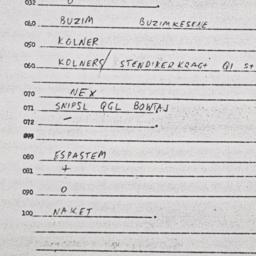 032 0
040 BUZIM BUZIMKESEKE
050 KOLNER
060 KOLNERS/ STENDIKERKRAGT QI
070 NEX
071 SNIPSL QGL BOWTAJ
072 -
080 ESPASTEM
081 +
090 0
100 NAKET